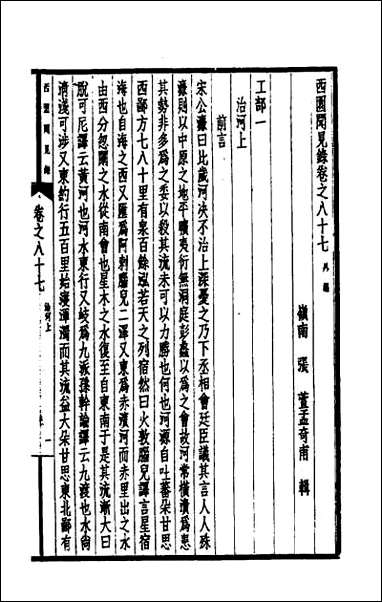 西園聞見錄卷之八十七 外編
嶺南 張 萱孟奇甫 輯
工部一
治河上
前言
宋公濂曰比歲河決不治上深憂之乃下丞相會廷臣議其言人人殊
濂則以中原之地平曠夷衍無洞庭彭蠡以為之會故河常橫潰為患
其勢非多為之委以殺其流未可以力勝也何也河源自吐蕃朶甘思
西鄙方七八十里有泉百餘泓若天之列宿然曰火敦腦兒譯言星宿
海也自海之西又匯為阿剌腦兒二澤又東為赤濱河而赤里出之水
由西分忽闌之水從南會也里木之水復至自東南于是其流漸大曰
脫可尼譯云黃河也河水東行又岐為九派孫幹論譯云九渡也水尚
清淺可涉又東約行五百里始寖渾濁而其流益大朶甘思東北鄙有
西園聞見錄
卷之八十七 治河上
一